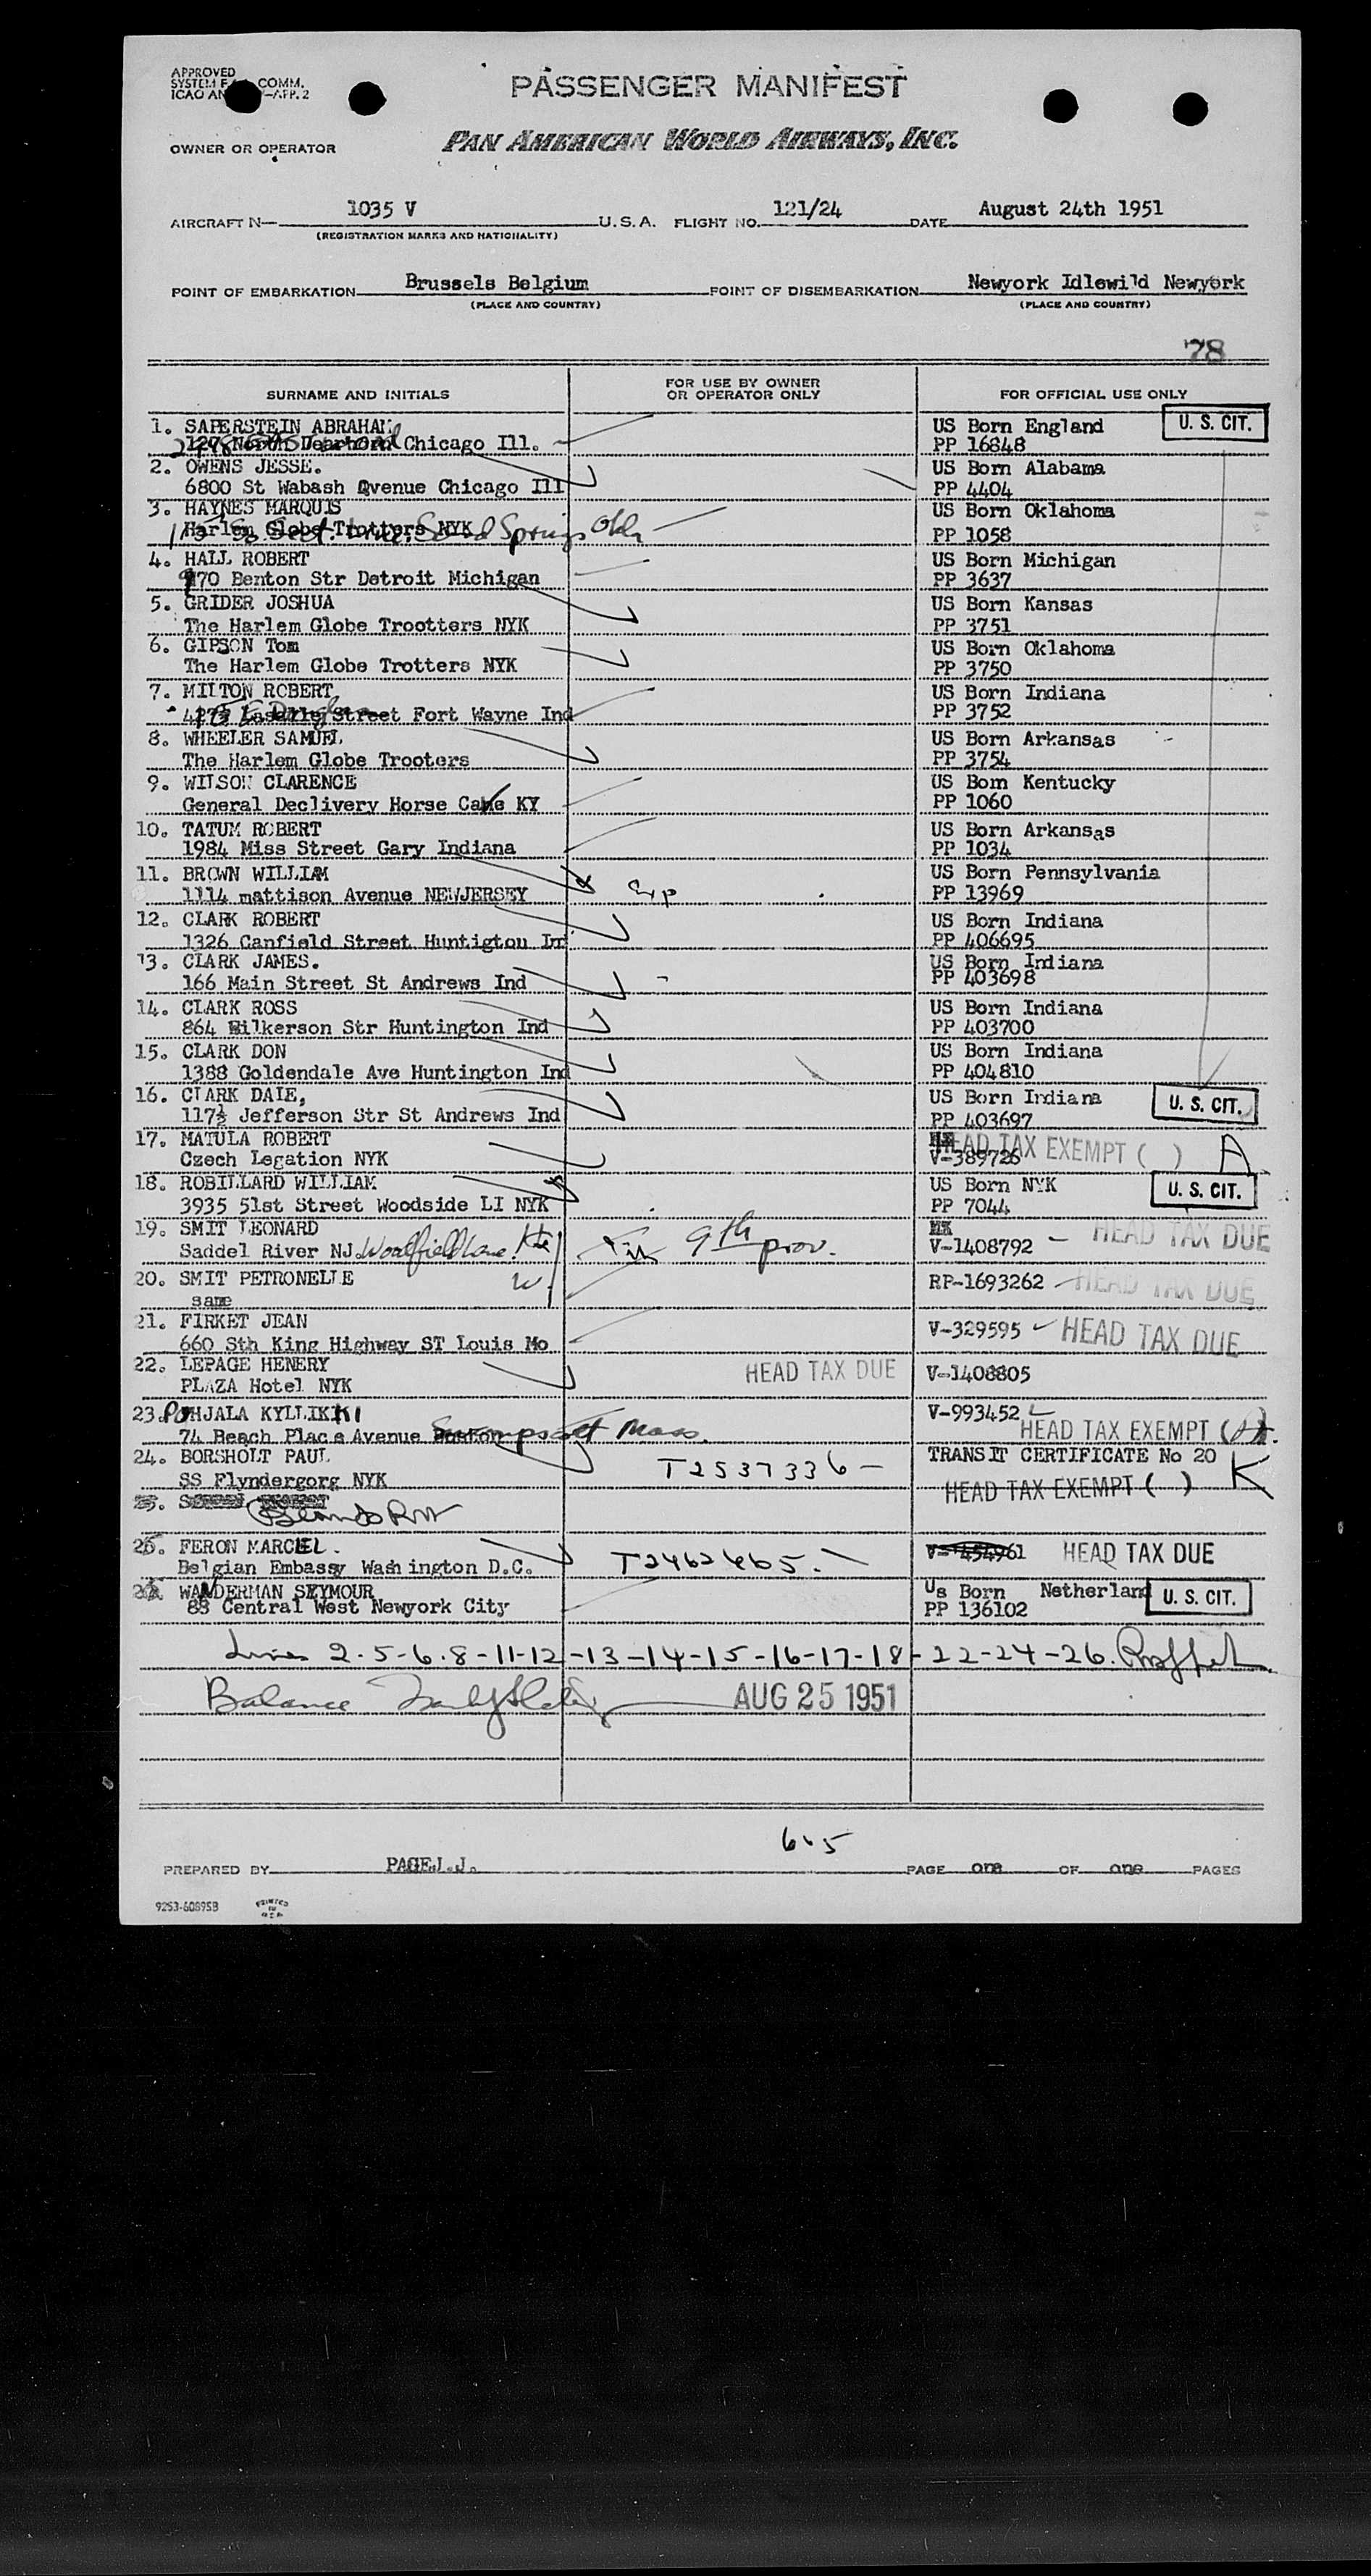 APPROVED
SYSTEM COMM.
ICAO AN -APP. 2
PASSENGER MANIFEST
OWNER OR OPERATOR
PAN AMERICAN WORLD AIRWAYS, INC.
AIRCRAFT N— 1035 V U.S.A. FLIGHT NO. 121/24 DATE August 24th 1951
(REGISTRATION MARKS AND NATIONALITY)
POINT OF EMBARKATION Brussels Belgium POINT OF DISEMBARKATION Newyork Idlewild Newyork
(PLACE AND COUNTRY) (PLACE AND COUNTRY)
78
SURNAME AND INITIALS FOR USE BY OWNER OR OPERATOR ONLY FOR OFFICIAL USE ONLY
1. SAPERSTEIN ABRAHAM US Born England U. S. CIT.
127 North Dearborn Chicago Ill. PP 16848
2. OWENS JESSE. US Born Alabama
6800 St Wabash Qvenue Chicago Ill PP 4404
3. HAYNES MARQUIS US Born Oklahoma
Harlem Globe Trotters NYK Sand Springs Okla PP 1058
4. HALL ROBERT US Born Michigan
970 Benton Str Detroit Michigan PP 3637
5. GRIDER JOSHUA US Born Kansas
The Harlem Globe Trootters NYK PP 3751
6. GIPSON Tom US Born Oklahoma
The Harlem Globe Trotters NYK PP 3750
7. MILTON ROBERT US Born Indiana
Lasalle Street Fort Wayne Ind PP 3752
8. WHEELER SAMUEL US Born Arkansas
The Harlem Globe Trooters PP 3754
9. WILSON CLARENCE US Born Kentucky
General Declivery Horse Cave KY PP 1060
10. TATUM ROBERT US Born Arkansas
1984 Miss Street Gary Indiana PP 1034
11. BROWN WILLIAM US Born Pennsylvania
1114 mattison Avenue NEWJERSEY Exp PP 13969
12. CLARK ROBERT US Born Indiana
1326 Canfield Street Huntigtou Ind PP 406695
13. CLARK JAMES. US Born Indiana
166 Main Street St Andrews Ind PP 403698
14. CLARK ROSS US Born Indiana
864 Bilkerson Str Huntington Ind PP 403700
15. CLARK DON US Born Indiana
1388 Goldendale Ave Huntington Ind PP 404810
16. CLARK DALE, US Born Indiana U. S. CIT.
117½ Jefferson Str St Andrews Ind PP 403697
17. MATULA ROBERT HEAD TAX EXEMPT ( ) A
Czech Legation NYK V-389726
18. ROBILLARD WILLIAM US Born NYK U. S. CIT.
3935 51st Street Woodside LI NYK PP 7044
19. SMIT LEONARD HEAD TAX DUE
Saddel River NJ. Woodfield Lane. 9th prov. V-1408792
20. SMIT PETRONELLE W RP-1693262 HEAD TAX DUE
same
21. FIRKET JEAN V-329595 HEAD TAX DUE
660 Sth King Highway ST Louis Mo
22. LEPAGE HENERY HEAD TAX DUE V-1408805
PLAZA Hotel NYK
23. POHJALA KYLLIKKI V-993452 HEAD TAX EXEMPT
74 Beach Place Avenue Boston Swampscott Mass.
24. BORSHOLT PAUL T2537336 TRANSIT CERTIFICATE No 20 K
SS Flyndergorg NYK HEAD TAX EXEMPT ( )
25.
26. FERON MARCEL. V-454961 HEAD TAX DUE
Belgian Embassy Washington D.C. T2462465.
WANDERMAN SEYMOUR Us Born Netherland U. S. CIT.
88 Central West Newyork City PP 136102
Lines 2-5-6-8-11-12-13-14-15-16-17-18-22-24-26.
Balance AUG 25 1951
605
PREPARED BY PAGE.J.J. PAGE one OF one PAGES
9253-60895B PRINTED IN U.S.A.